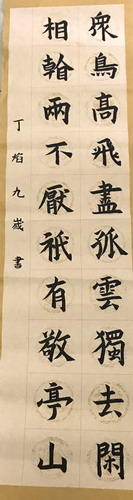 衆鳥髙飛盡孤雲獨去閑
相翰兩不厭祇有敬亭山
丁焰九嵗書